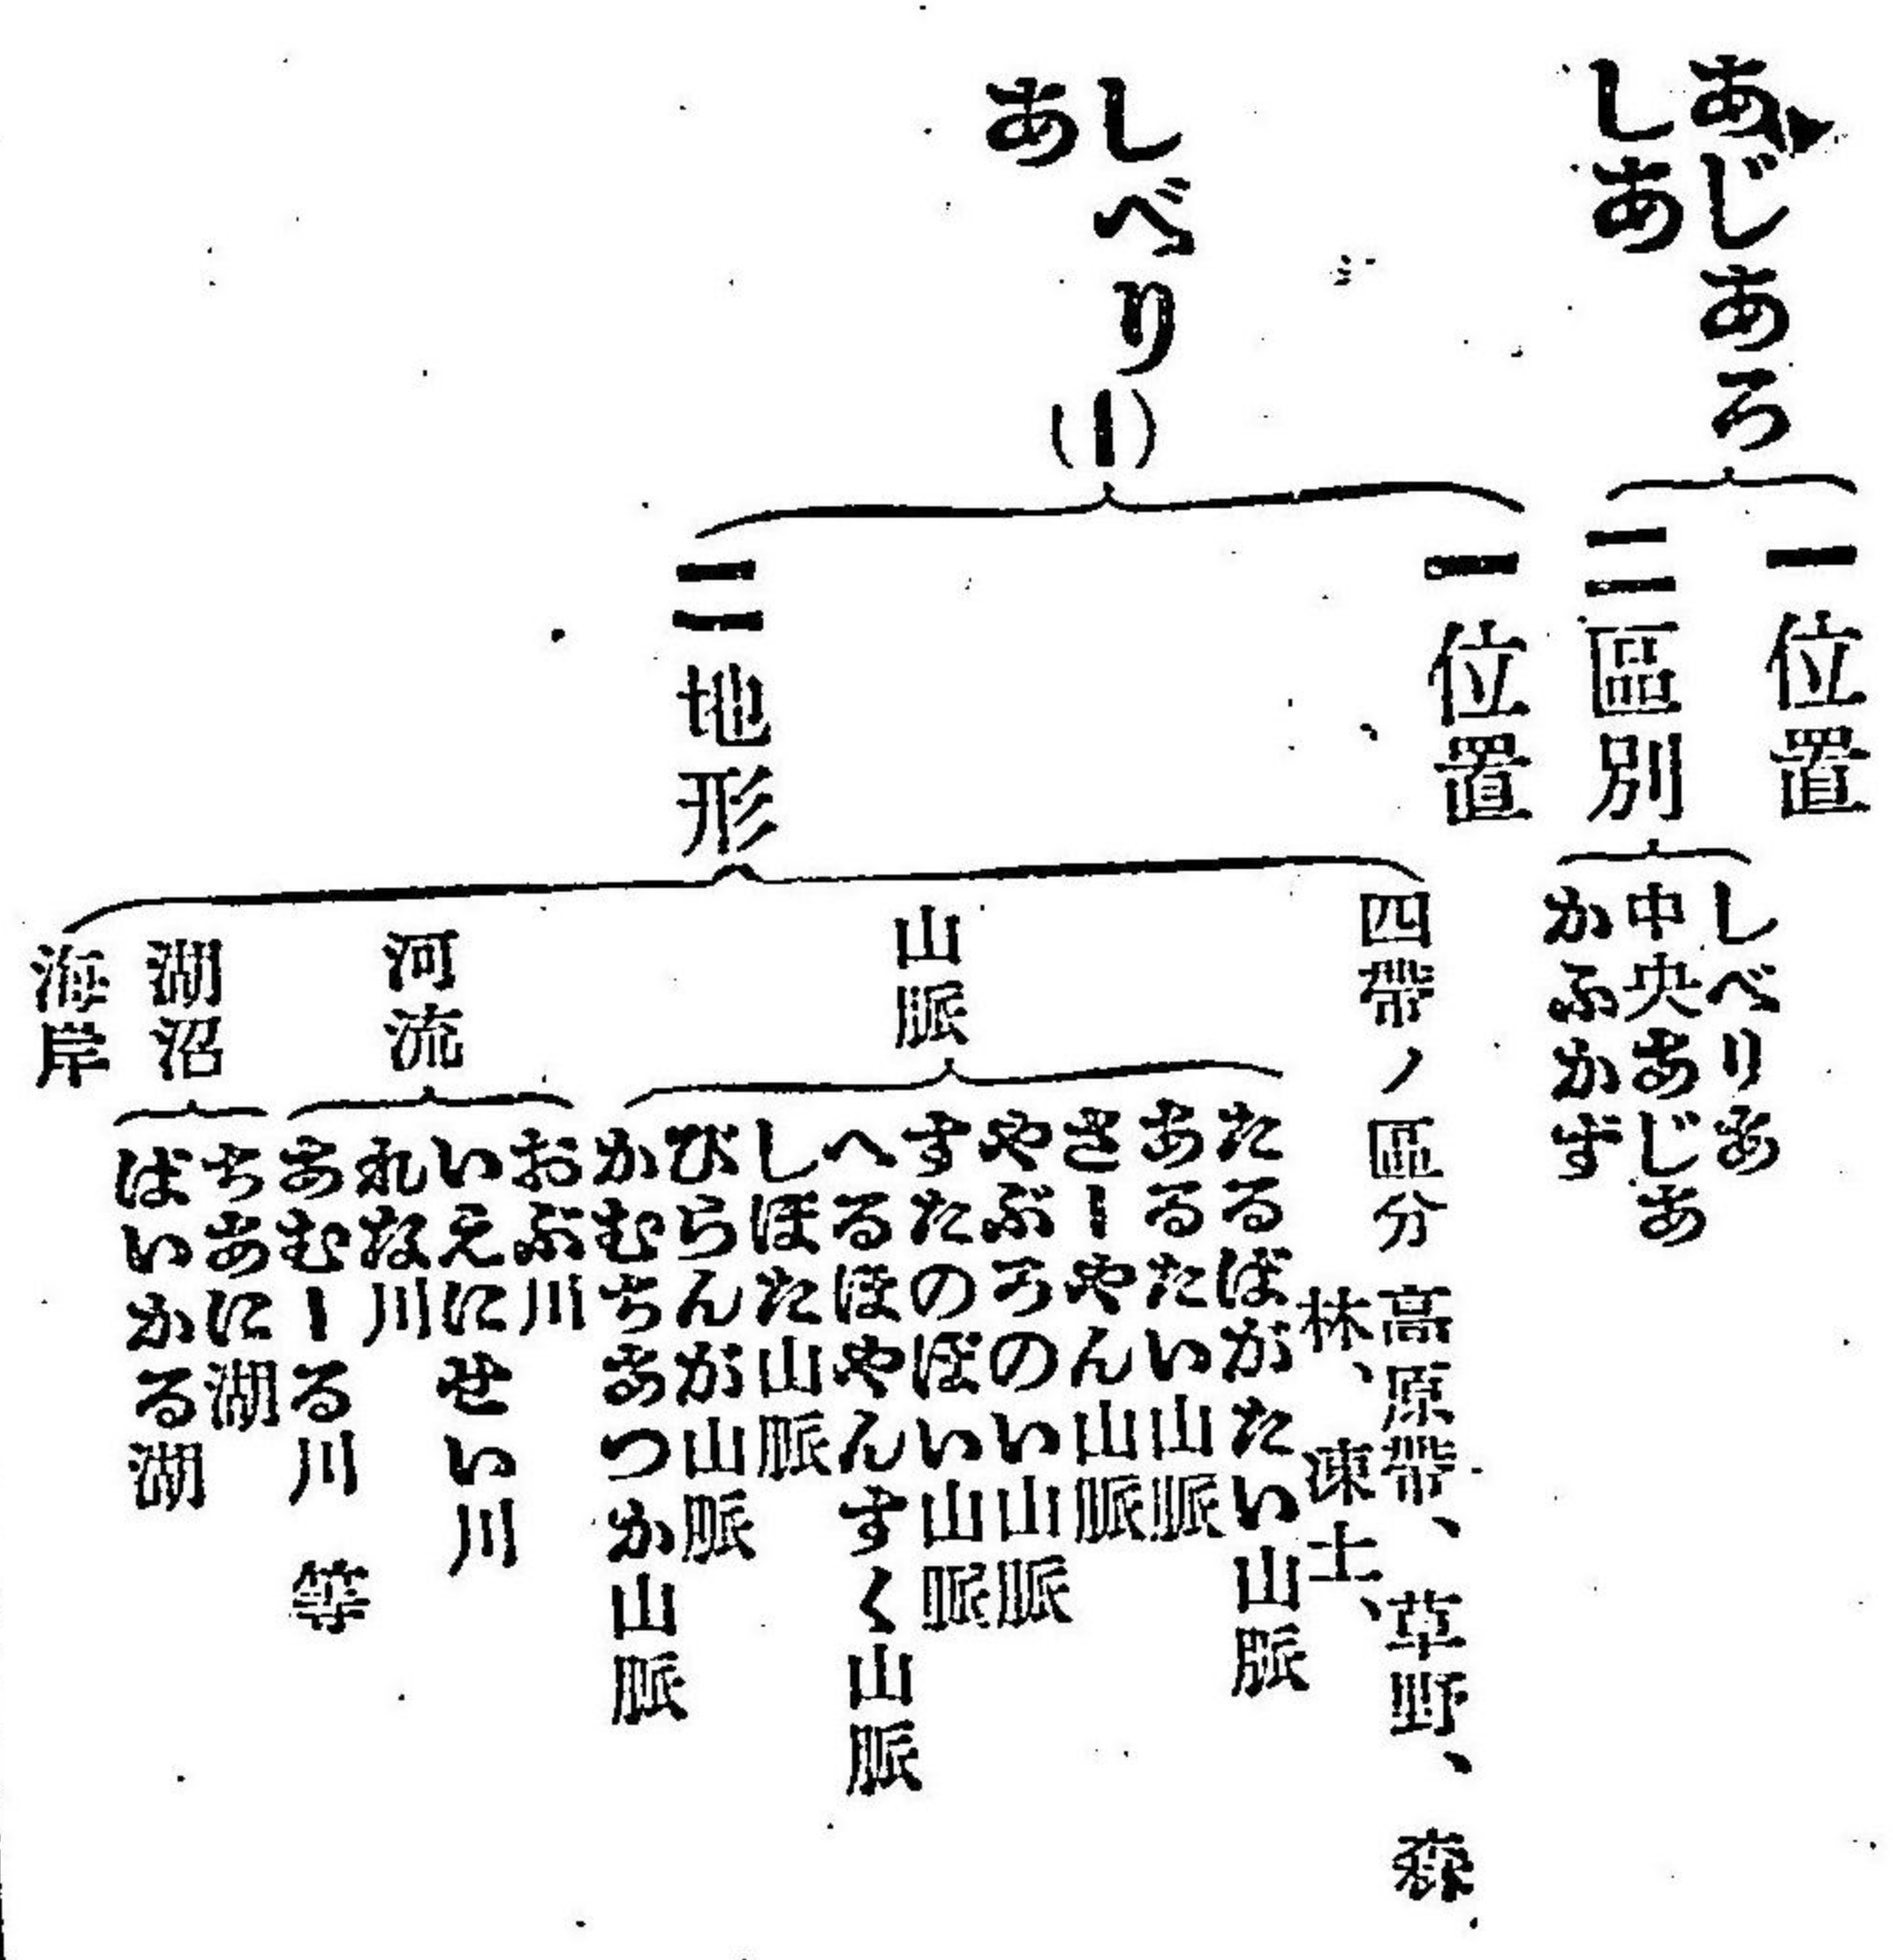 あじあろ
しあ
一位置
二區別
しべりあ
中央あじあ
かふかず
しべり(一)
あ
一位置
二地形
四帶ノ區分
高原帶、草野、森
林、凍土、
山脈
たるばがたい山脈
あるたい山脈
さーやん山脈
やぶろのい山脈
すたのぼい山脈
へるほやんすく山脈
しほた山脈
びらんが山脈
かむちあつか山脈
河流
おぶ川
いえにせい川
れな川
あむーる川 等
湖沼
ちあに湖
ばいかる湖
海岸